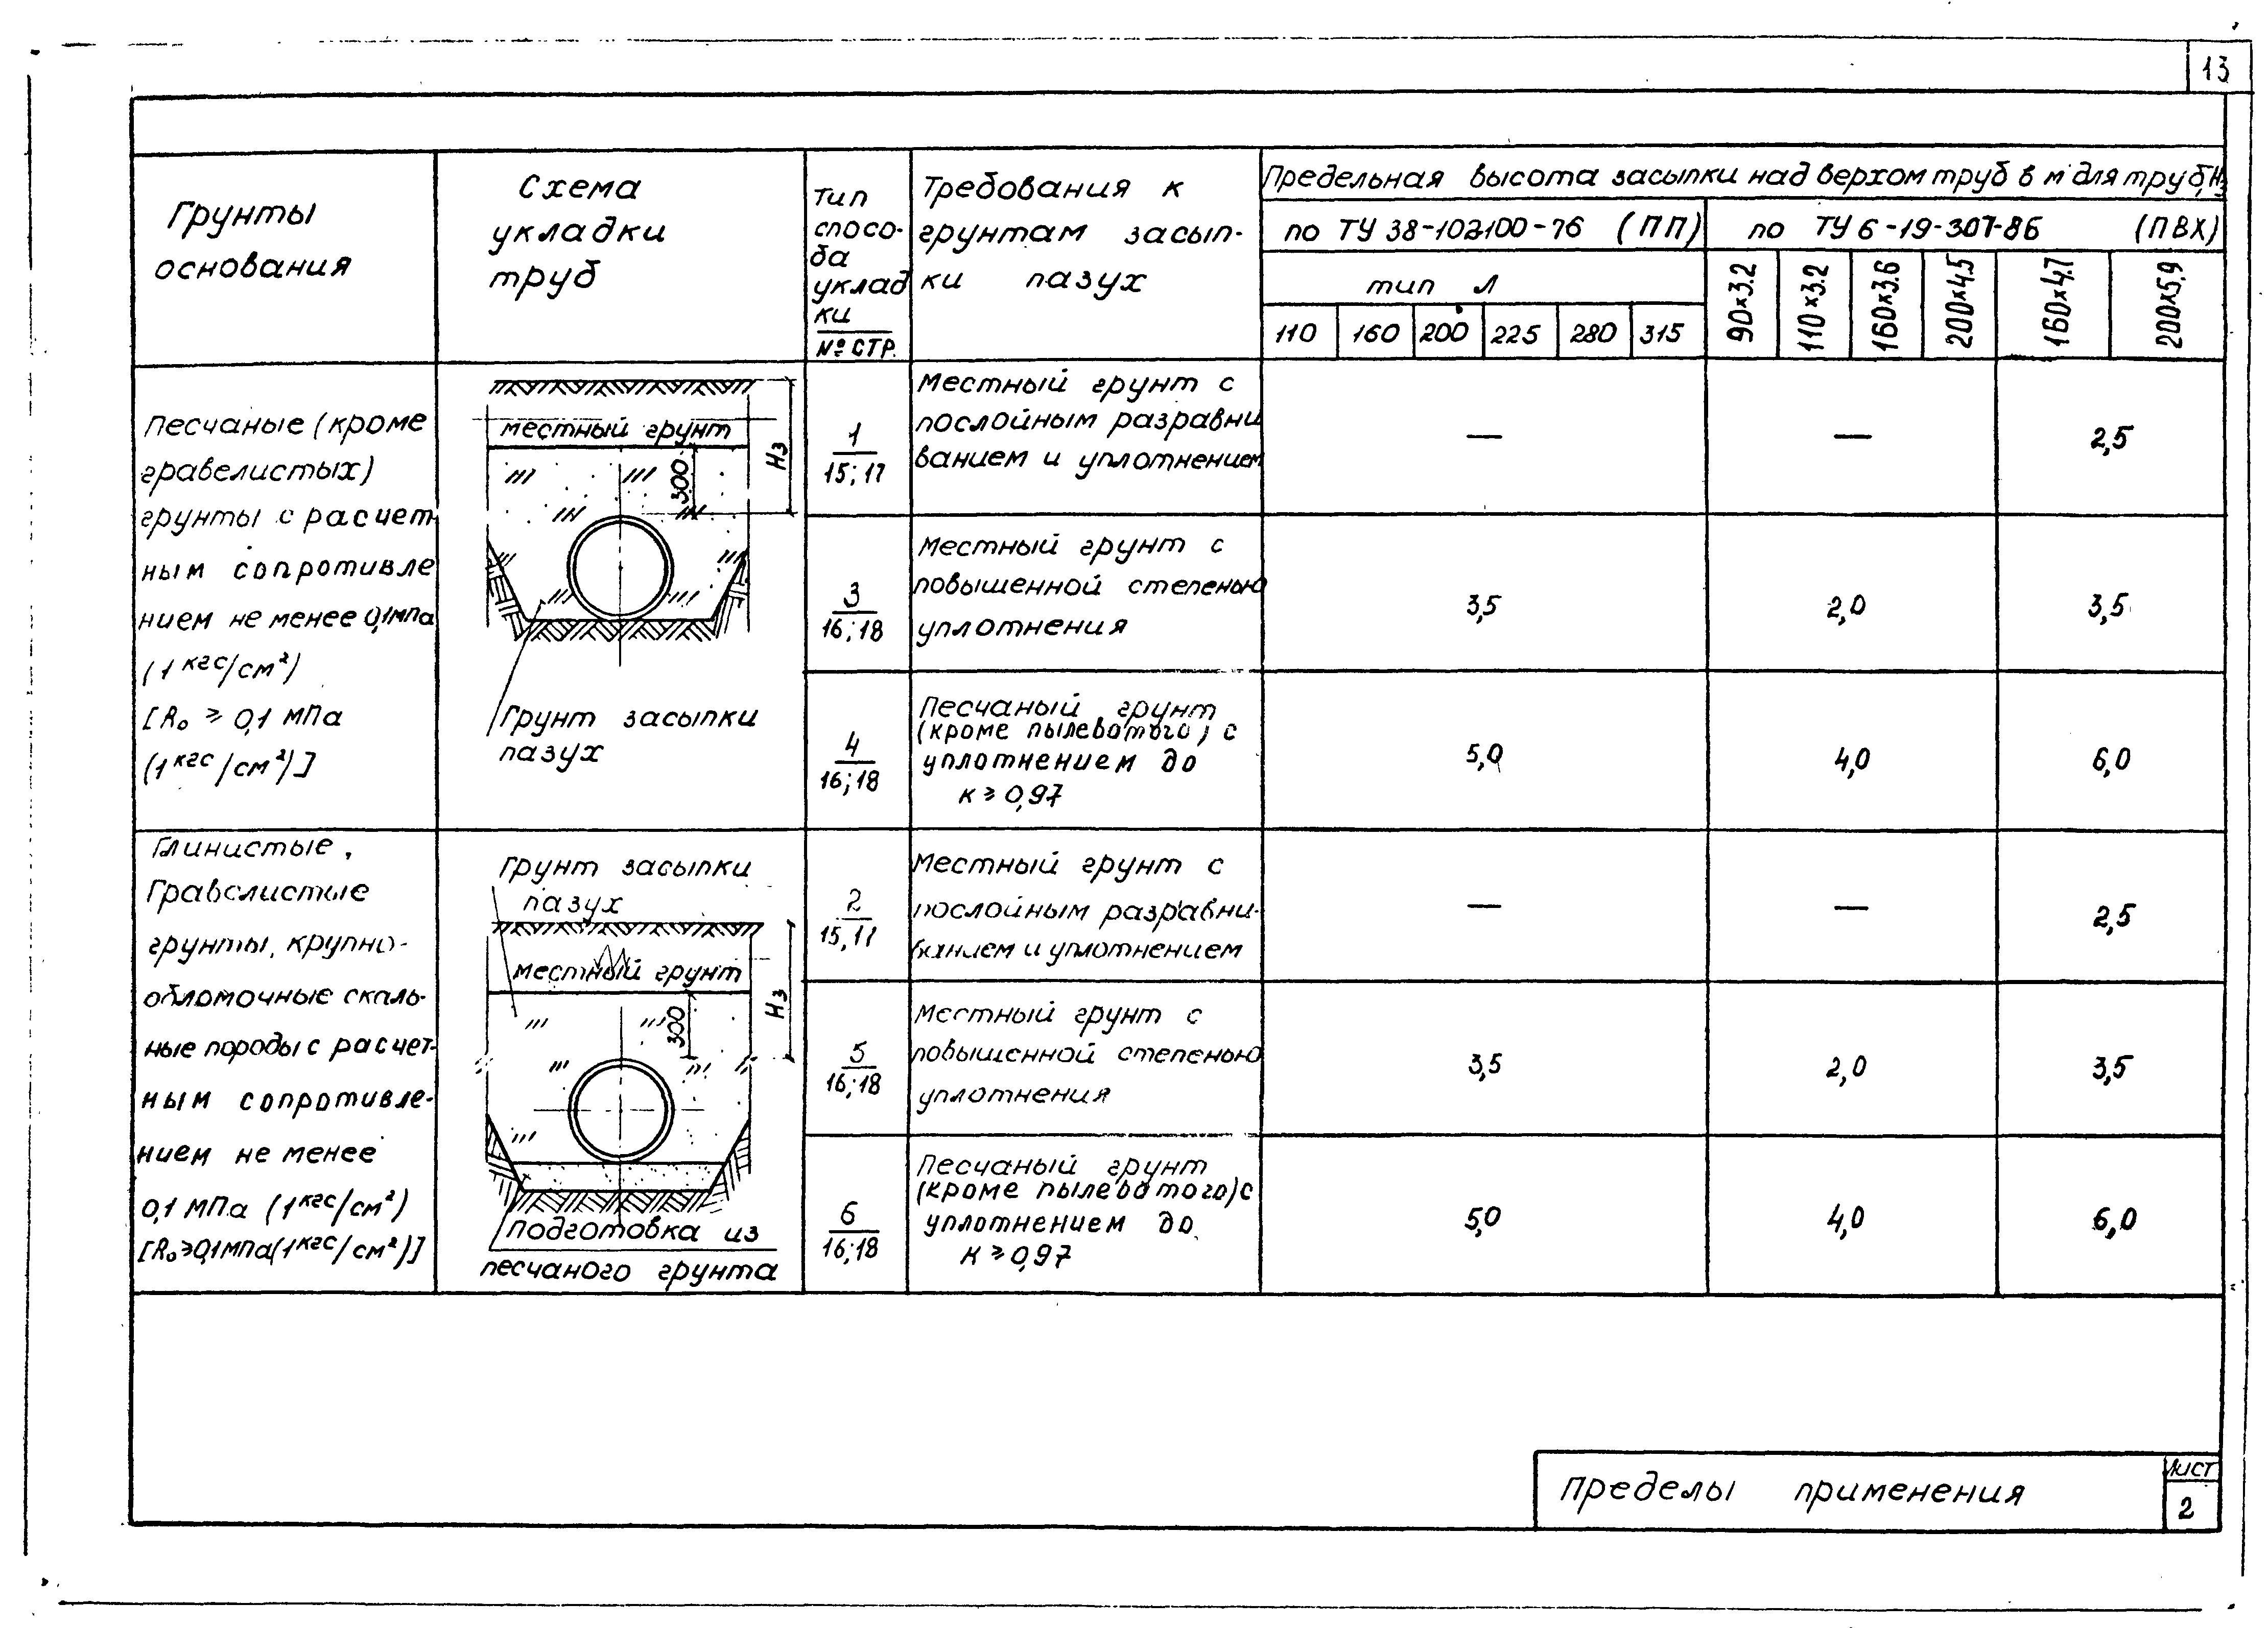 13
Грунты
основания
Схема
укладки
труб
Тип
спосо-
ба
уклад
ки
№ СТР.
Требования к
грунтам засып-
ки пазух
Предельная высота засыпки над верхом труб в м для труб, Нз
по ТУ 38-102100-76 (ПП)
по ТУ 6-19-307-86 (ПВХ)
тип Л
110 160 200 225 280 315
90×3.2 110×3.2 160×3.6 200×4.5 160×4.7 200×5,9
Песчаные (кроме
гравелистых)
грунты с расчет-
ным сопротивле
нием не менее 0,1 мпа
(1 кгс/см²)
[R₀ ≥ 0,1 МПа
(1 кгс/см²)]
местный грунт
300
Нз
Грунт засыпки
пазух
1
15; 17
Местный грунт с
послойным разравни
ванием и уплотнением
— — 2,5
3
16; 18
Местный грунт с
повышенной степенью
уплотнения
3,5 2,0 3,5
4
16; 18
Песчаный грунт
(кроме пылеватого) с
уплотнением до
к ≥ 0,97
5,0 4,0 6,0
Глинистые,
Гравелистые
грунты, крупно-
обломочные скаль-
ные породы с расчет-
ным сопротивле-
нием не менее
0,1 МПа (1 кгс/см²)
[R₀ ≥ 0,1 мпа (1 кгс/см²)]
Грунт засыпки
пазух
местный грунт
300
Нз
Подготовка из
песчаного грунта
2
15, 17
Местный грунт с
послойным разравни-
ванием и уплотнением
— — 2,5
5
16; 18
Местный грунт с
повышенной степенью
уплотнения
3,5 2,0 3,5
6
16; 18
Песчаный грунт
(кроме пылеватого) с
уплотнением до
к ≥ 0,97
5,0 4,0 6,0
Пределы применения
Лист
2